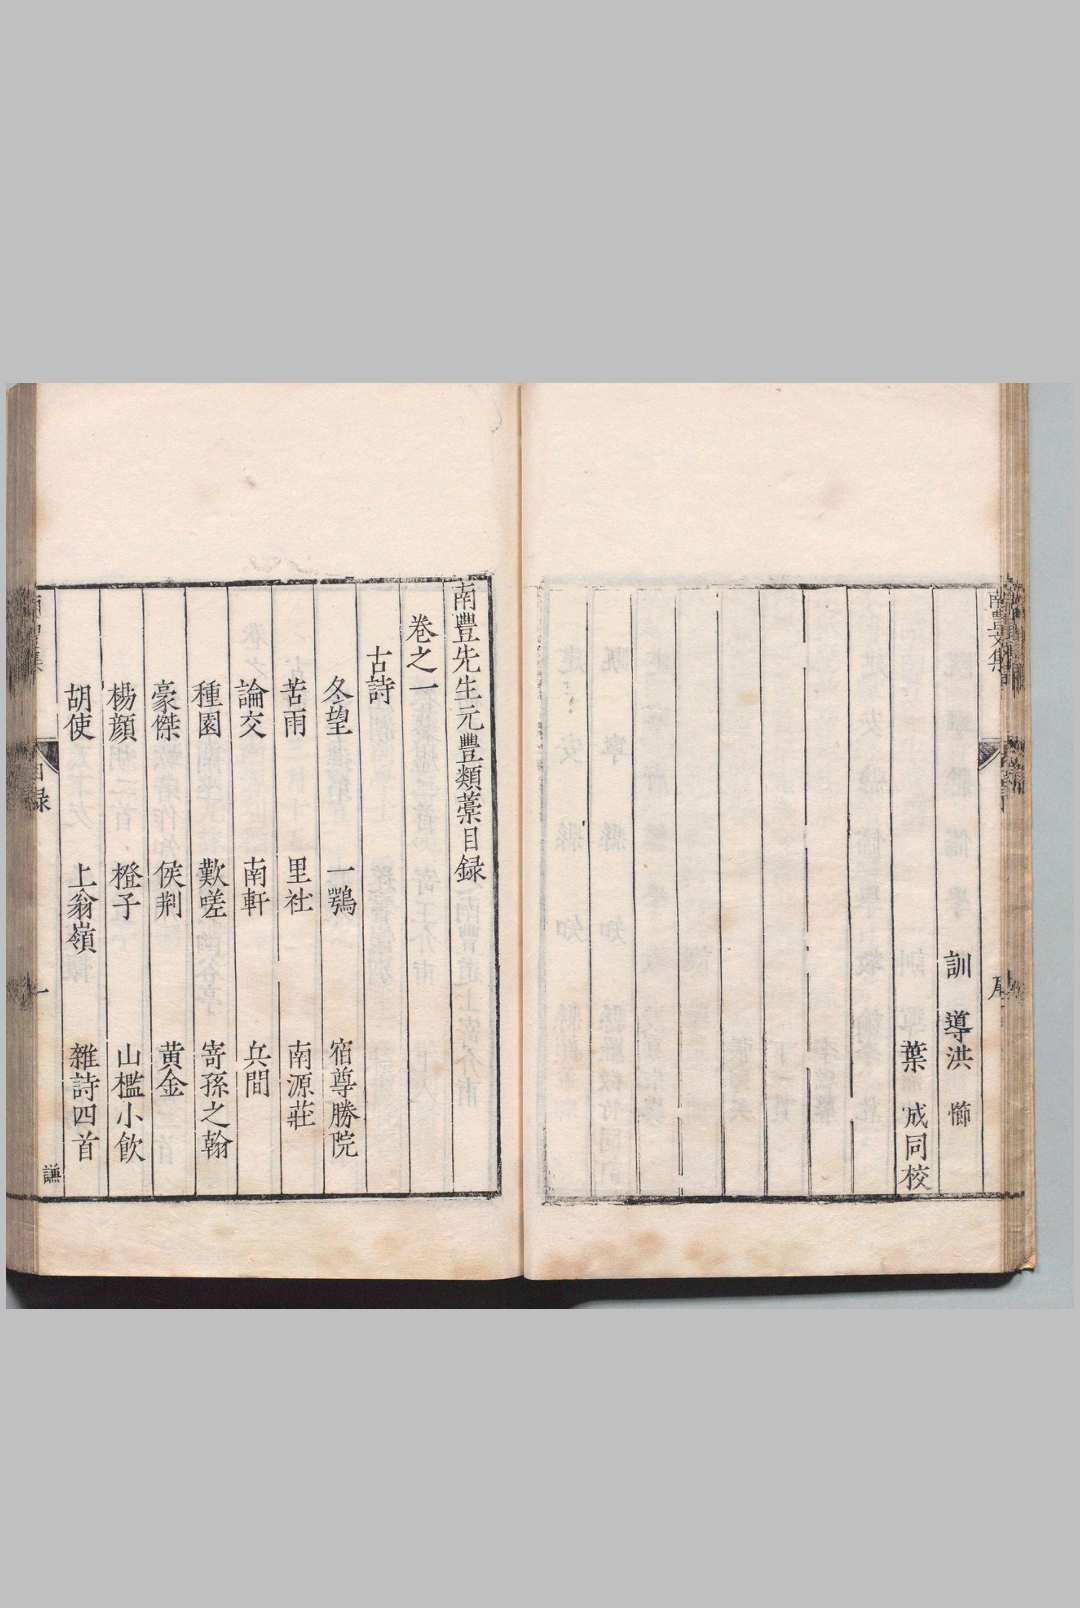 訓導洪
葉成同校
南豐文集
南豐先生元豐類藁目録
卷之一
古詩
冬望 一鶚 宿尊勝院
苦雨 里社 南源莊
論交 南軒 兵間
種園 歎嗟 寄孫之翰
豪傑 侯荆 黄金
楊顔 橙子 山檻小飲
胡使 上翁嶺 雜詩四首
目録 一
謙